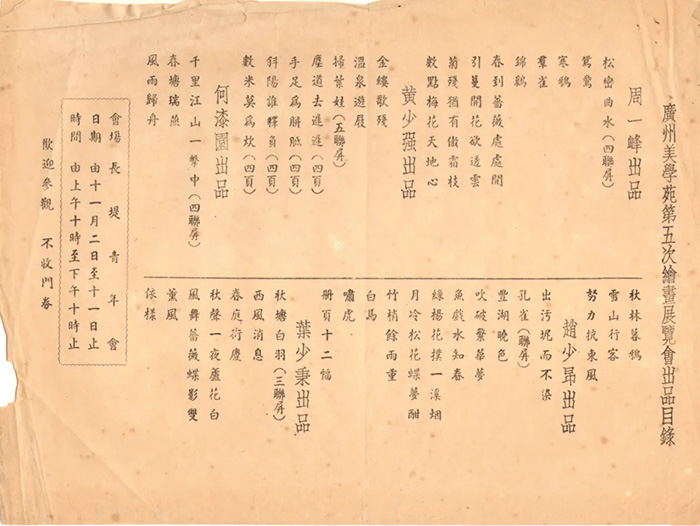 廣州美學苑第五次繪畫展覽會出品目錄
周一峰出品
松巒曲水（四聯屏）
鴛鴦
寒鴉
羣雀
錦鷄
春到薔薇處處開
引蔓開花欲透雲
菊殘猶有傲霜枝
數點梅花天地心
黃少强出品
金縷歌殘
溫泉遊屐
掃葉娃（五聯屏）
塵道去進進（四頁）
手足為胼胝（四頁）
斜陽誰釋負（四頁）
數米莫為炊（四頁）
何漆園出品
千里江山一擊中（四聯屏）
春塘瑞燕
風雨歸舟
秋林暮鴉
雪山行客
努力抗東風
趙少昂出品
出污坭而不染
孔雀（聯屏）
豐湖晚色
吹破繁華夢
魚戲水知春
綠楊花撲一溪烟
月冷松花蝶夢酣
竹梢餘雨重
白馬
嘯虎
册頁十二幅
葉少秉出品
秋塘白羽（三聯屏）
西風消息
春庭荷慶
秋聲一夜蘆花白
風舞薔薇蝶影雙
薰風
依樣
會場 長堤青年會
日期 由十一月二日至十一日止
時間 由上午十時至下午十時止
歡迎參觀 不收門券